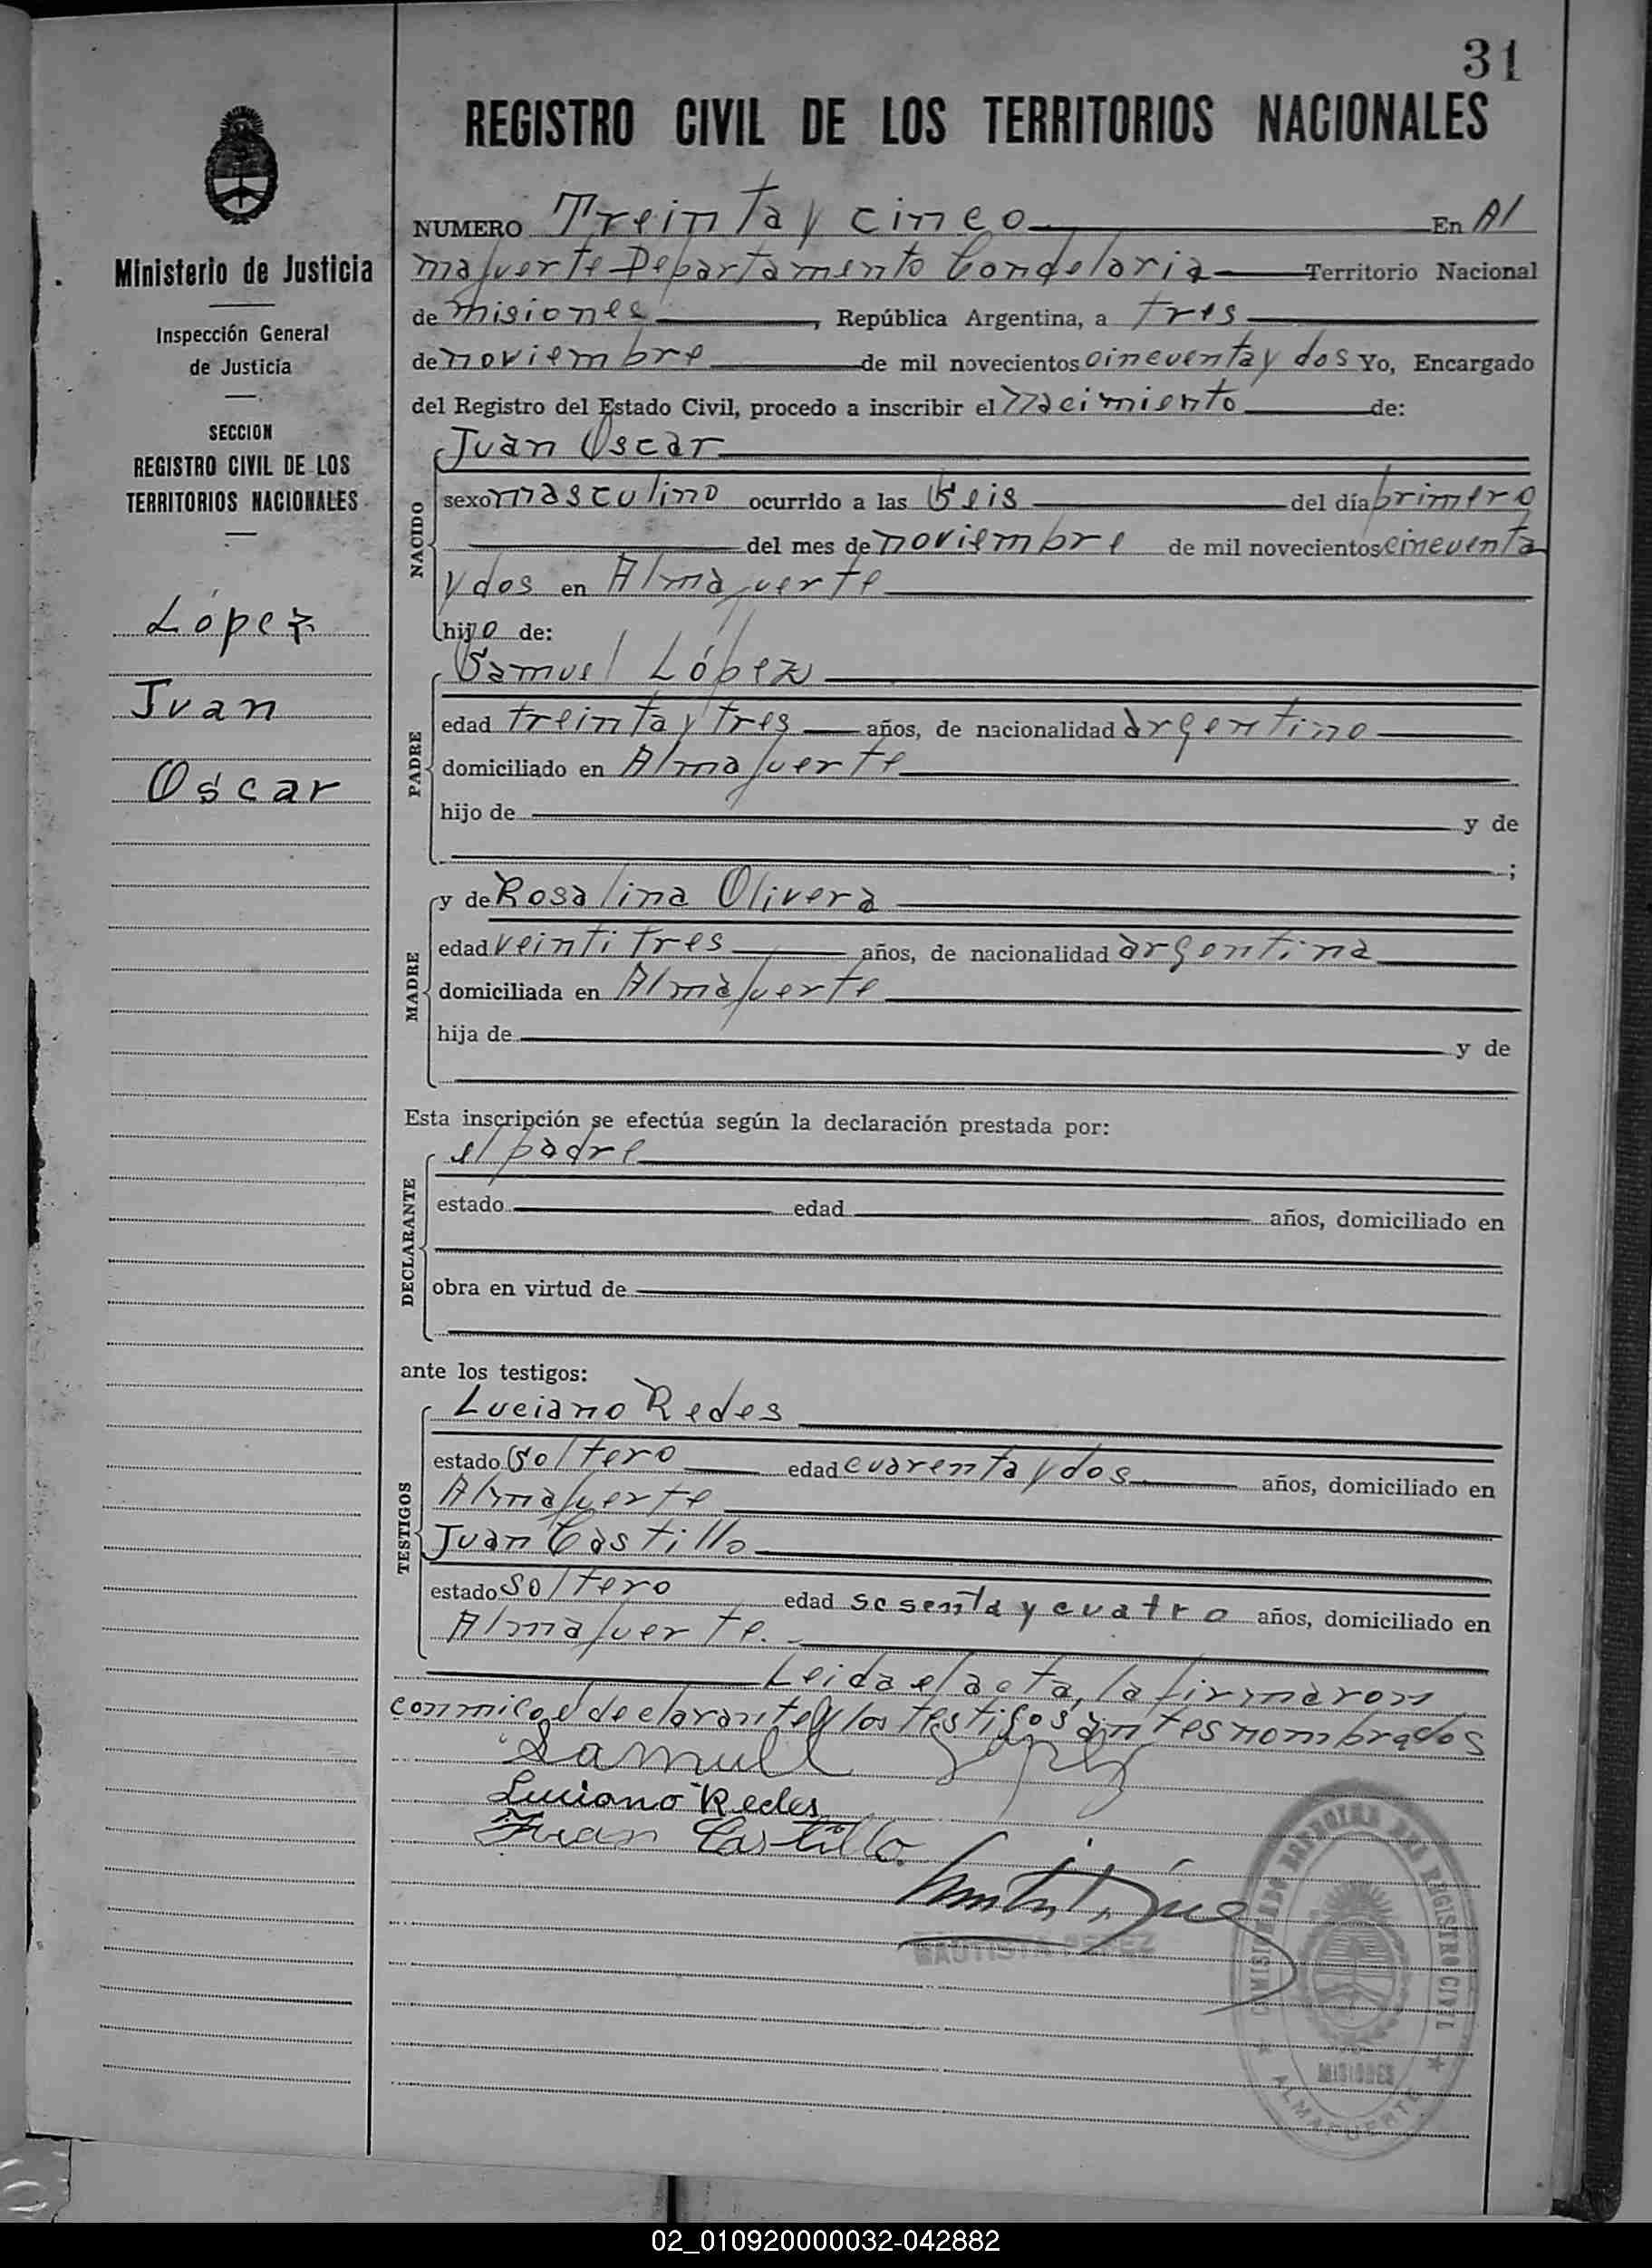 31
REGISTRO CIVIL DE LOS TERRITORIOS NACIONALES
Ministerio de Justicia
Inspección General
de Justicia
SECCION
REGISTRO CIVIL DE LOS
TERRITORIOS NACIONALES
López
Juan
Oscar
NUMERO Treinta y cinco En Al
mafuerte Departamento Candelaria Territorio Nacional
de misiones, República Argentina, a tres
de noviembre de mil novecientos cincuenta y dos Yo, Encargado
del Registro del Estado Civil, procedo a inscribir el nacimiento de:
NACIDO
Juan Oscar
sexo masculino ocurrido a las Seis del día primero
del mes de noviembre de mil novecientos cincuenta
y dos en Almafuerte
hijo de:
PADRE
Samuel López
edad treinta y tres años, de nacionalidad argentino
domiciliado en Almafuerte
hijo de y de
;
MADRE
y de Rosalina Olivera
edad veintitres años, de nacionalidad argentina
domiciliada en Almafuerte
hija de y de
Esta inscripción se efectúa según la declaración prestada por:
DECLARANTE
el padre
estado edad años, domiciliado en
obra en virtud de
ante los testigos:
TESTIGOS
Luciano Redes
estado Soltero edad cuarenta y dos años, domiciliado en
Almafuerte
Juan Castillo
estado soltero edad sesenta y cuatro años, domiciliado en
Almafuerte.
Leida el acta, la firmaron
conmigo el declarante y los testigos antes nombrados
Samuel Lopez
Luciano Redes
Juan Castillo
BAUTISTA PEREZ
REGISTRO CIVIL
MISIONES
ALMAFUERTE
02_010920000032-042882